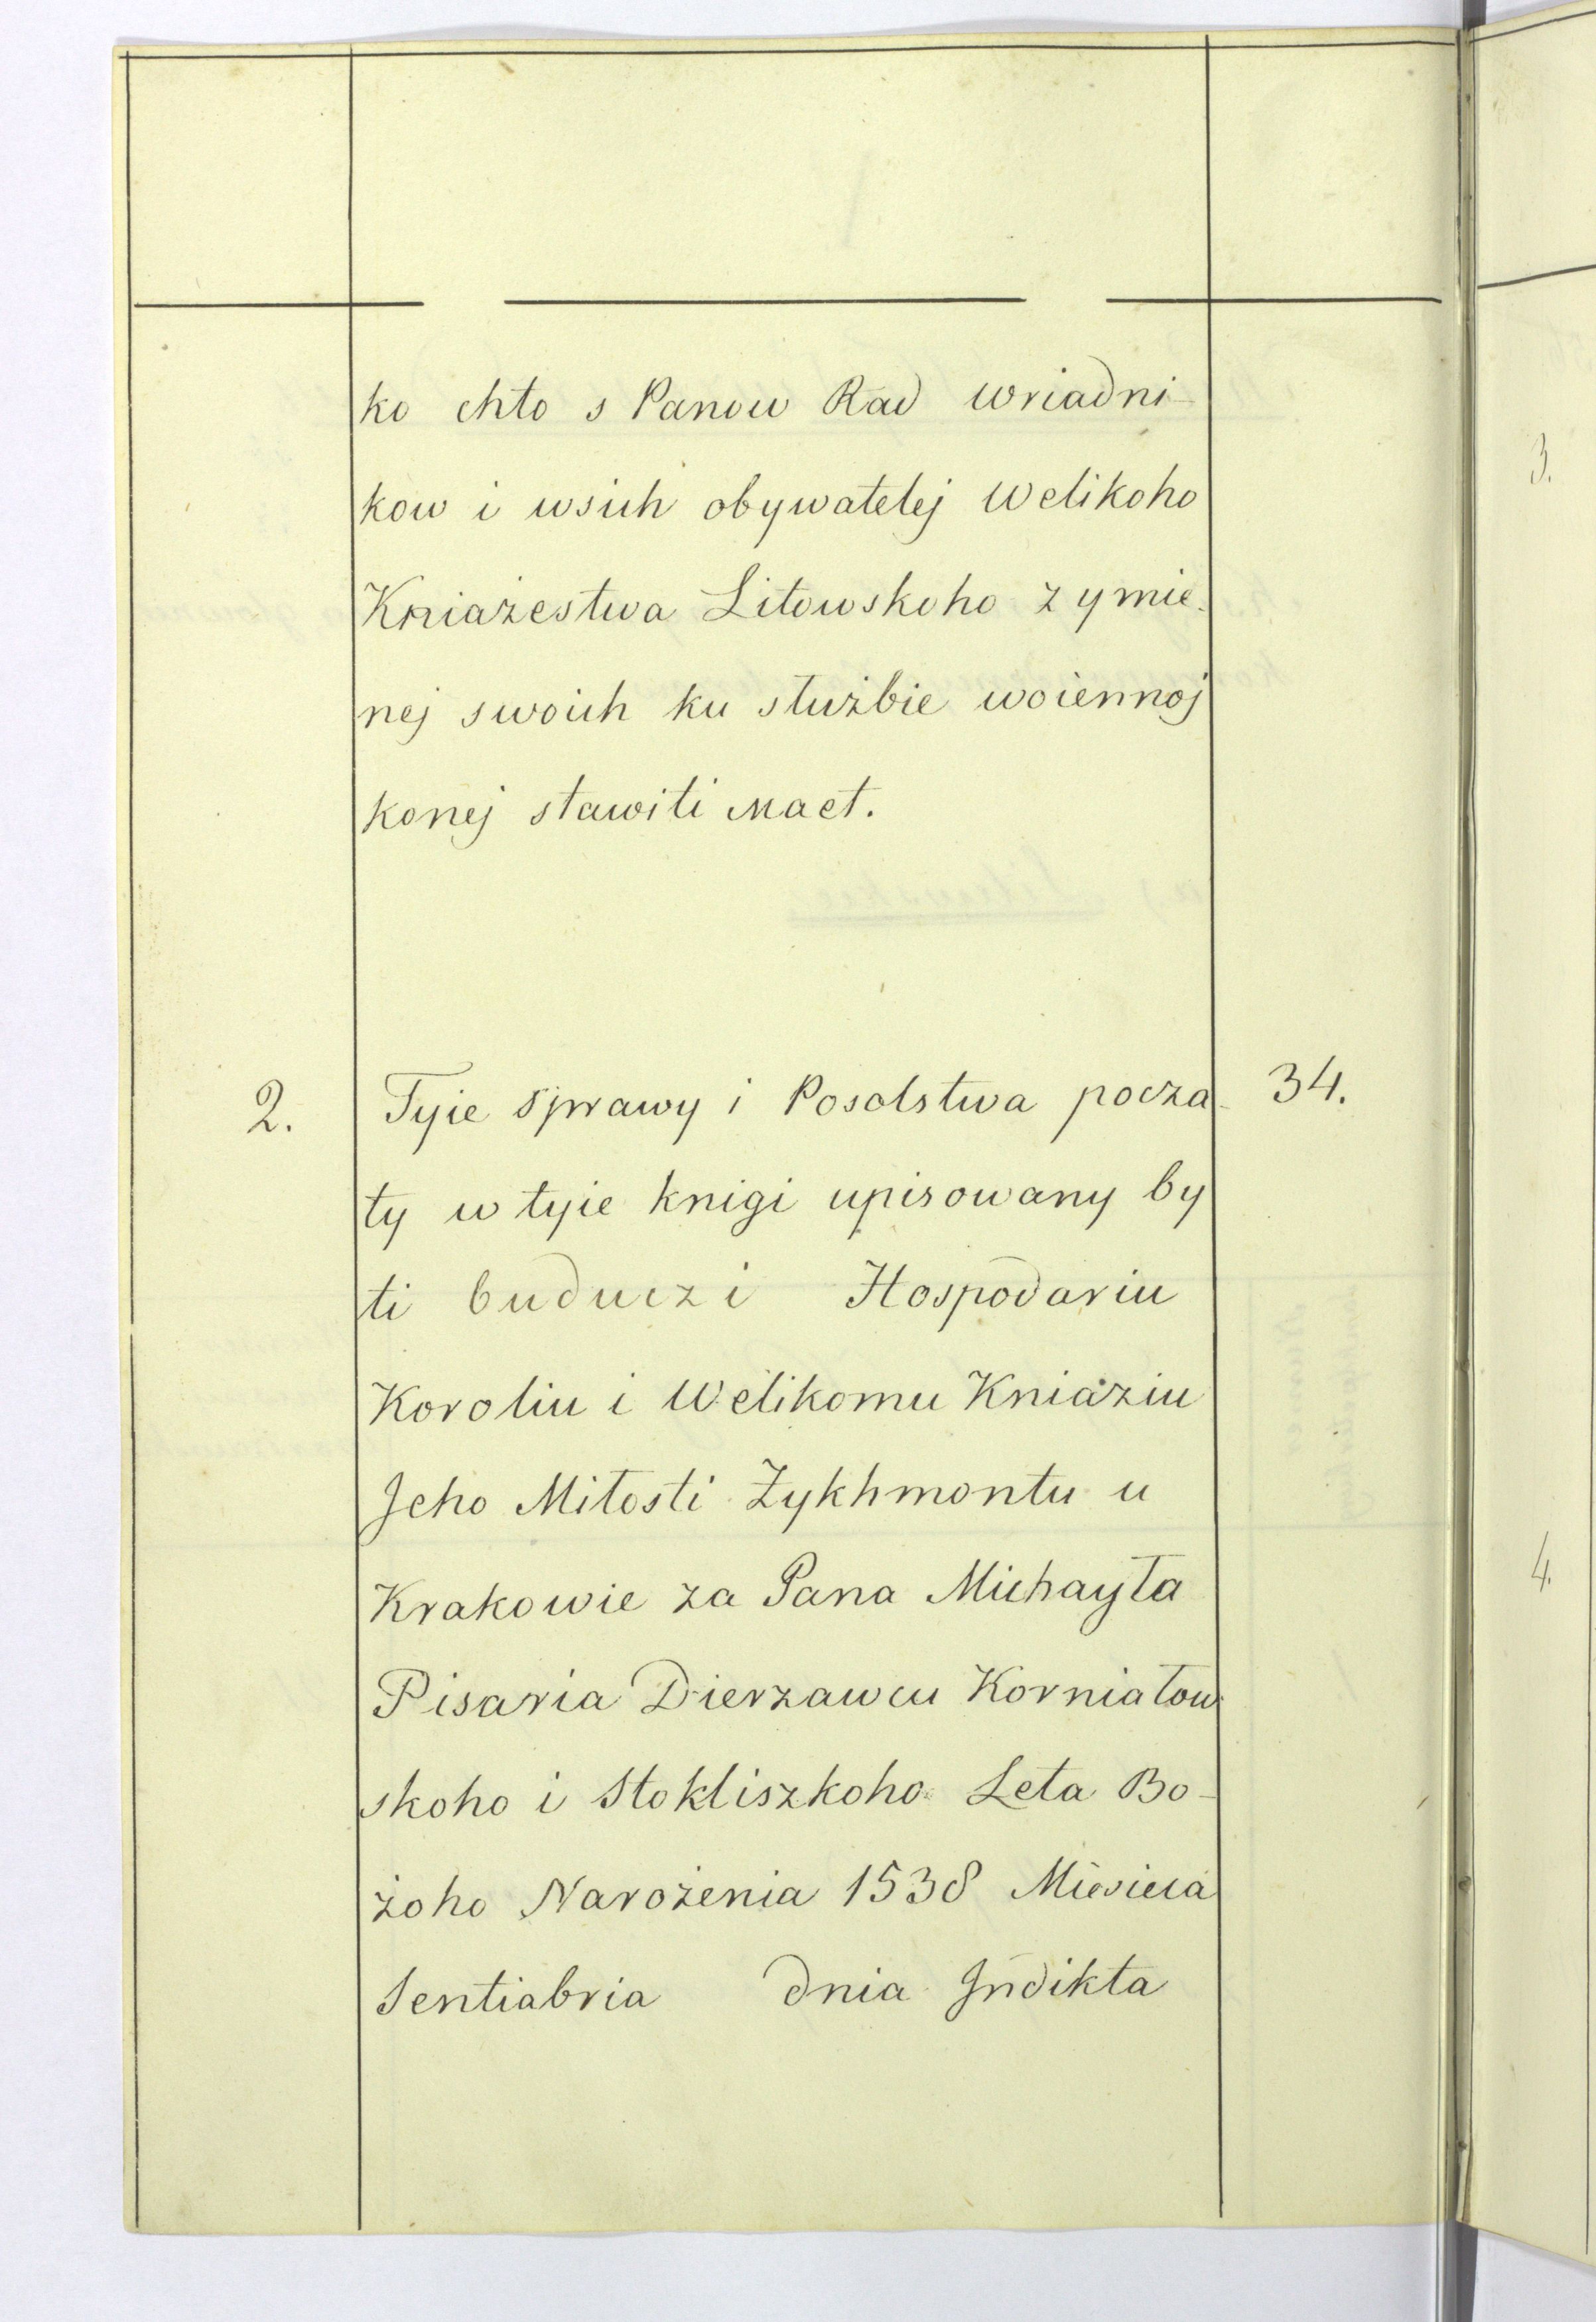 ko chto s Panow Rad Wriadni-
kow i wsich obywatelej Welikoho
Kniażestwa Litowskoho z ymie-
nej swoich ku służbie woiennoj
konej stawiti maet.
2. Tyie sprawy i Posolstwa pocza- 34.
ty w tyie knigi upisowany by
ti buduczi Hospodariu
Koroliu i Welikomu Kniaziu
Jeho Miłosti Zykhmontu u
Krakowie za Pana Michayła
Pisaria Dierzawcu Korniałow
skoho i Stokliszkoho Leta Bo-
żoho Narożenia 1538 Miesieca
Sentiabria dnia Indikta
3.
4.